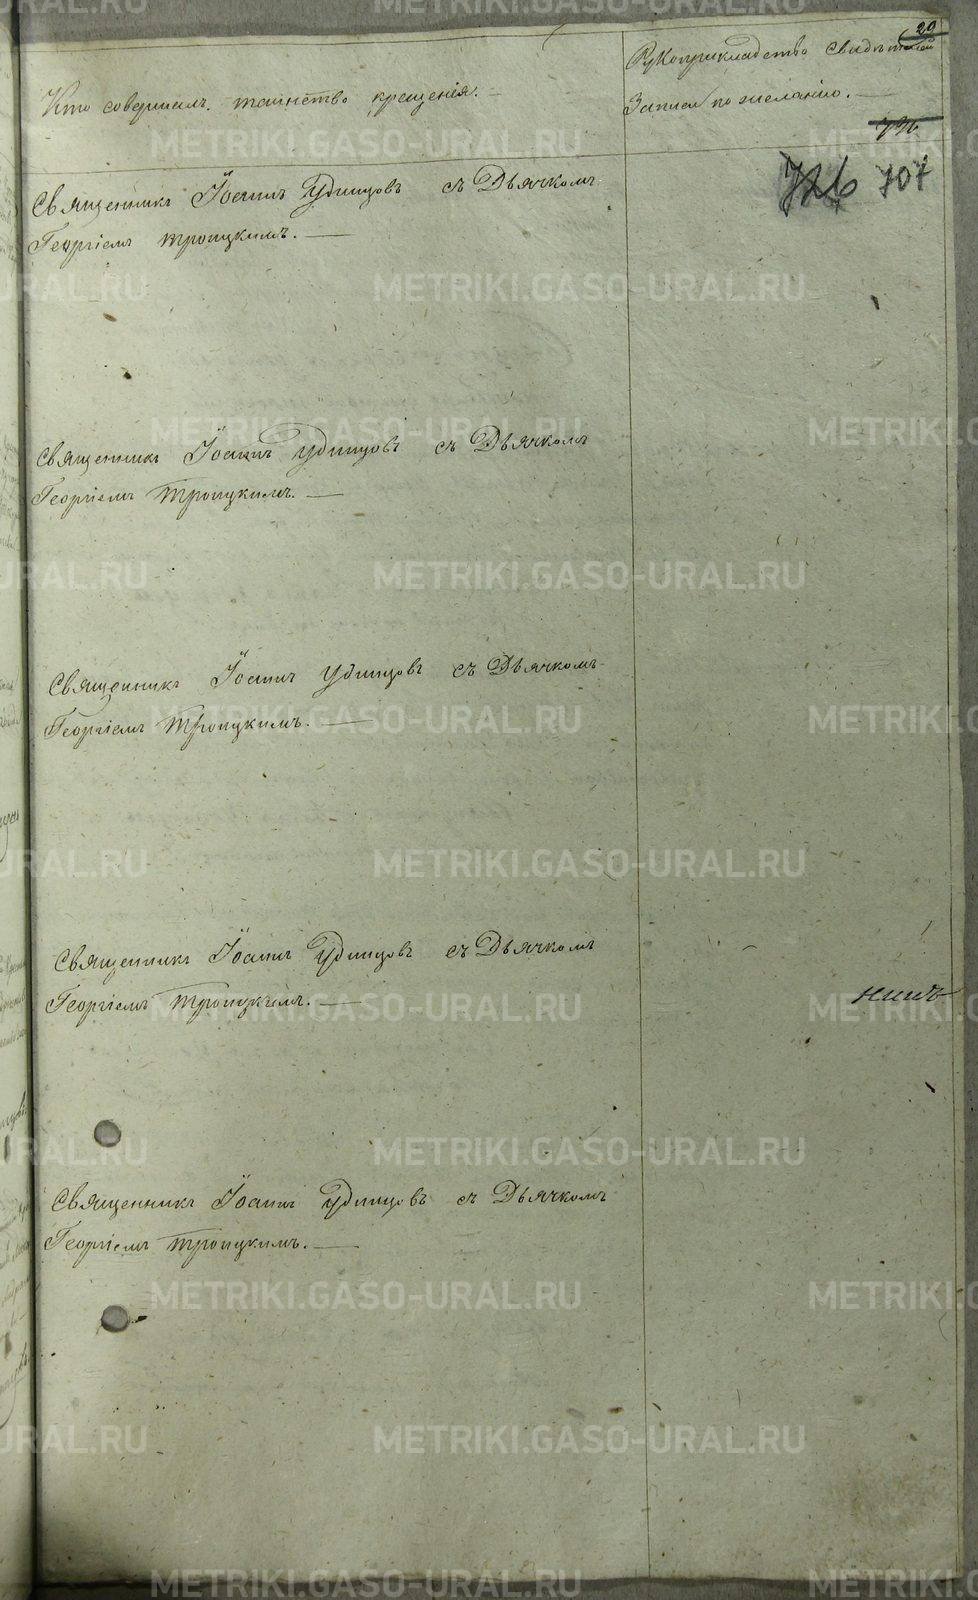 29
Кто совершалъ таинство крещенія.
Рукоприкладство свидѣтелей
Записи по желанію.
726 707
Священникъ Іоаннъ Удинцовъ съ Дьячкомъ
Георгіемъ Троицкимъ.
Священникъ Іоаннъ Удинцовъ съ Дьячкомъ
Георгіемъ Троицкимъ.
Священникъ Іоаннъ Удинцовъ съ Дьячкомъ
Георгіемъ Троицкимъ.
Священникъ Іоаннъ Удинцовъ съ Дьячкомъ
Георгіемъ Троицкимъ.
Священникъ Іоаннъ Удинцовъ съ Дьячкомъ
Георгіемъ Троицкимъ.
METRIKI.GASO-URAL.RU